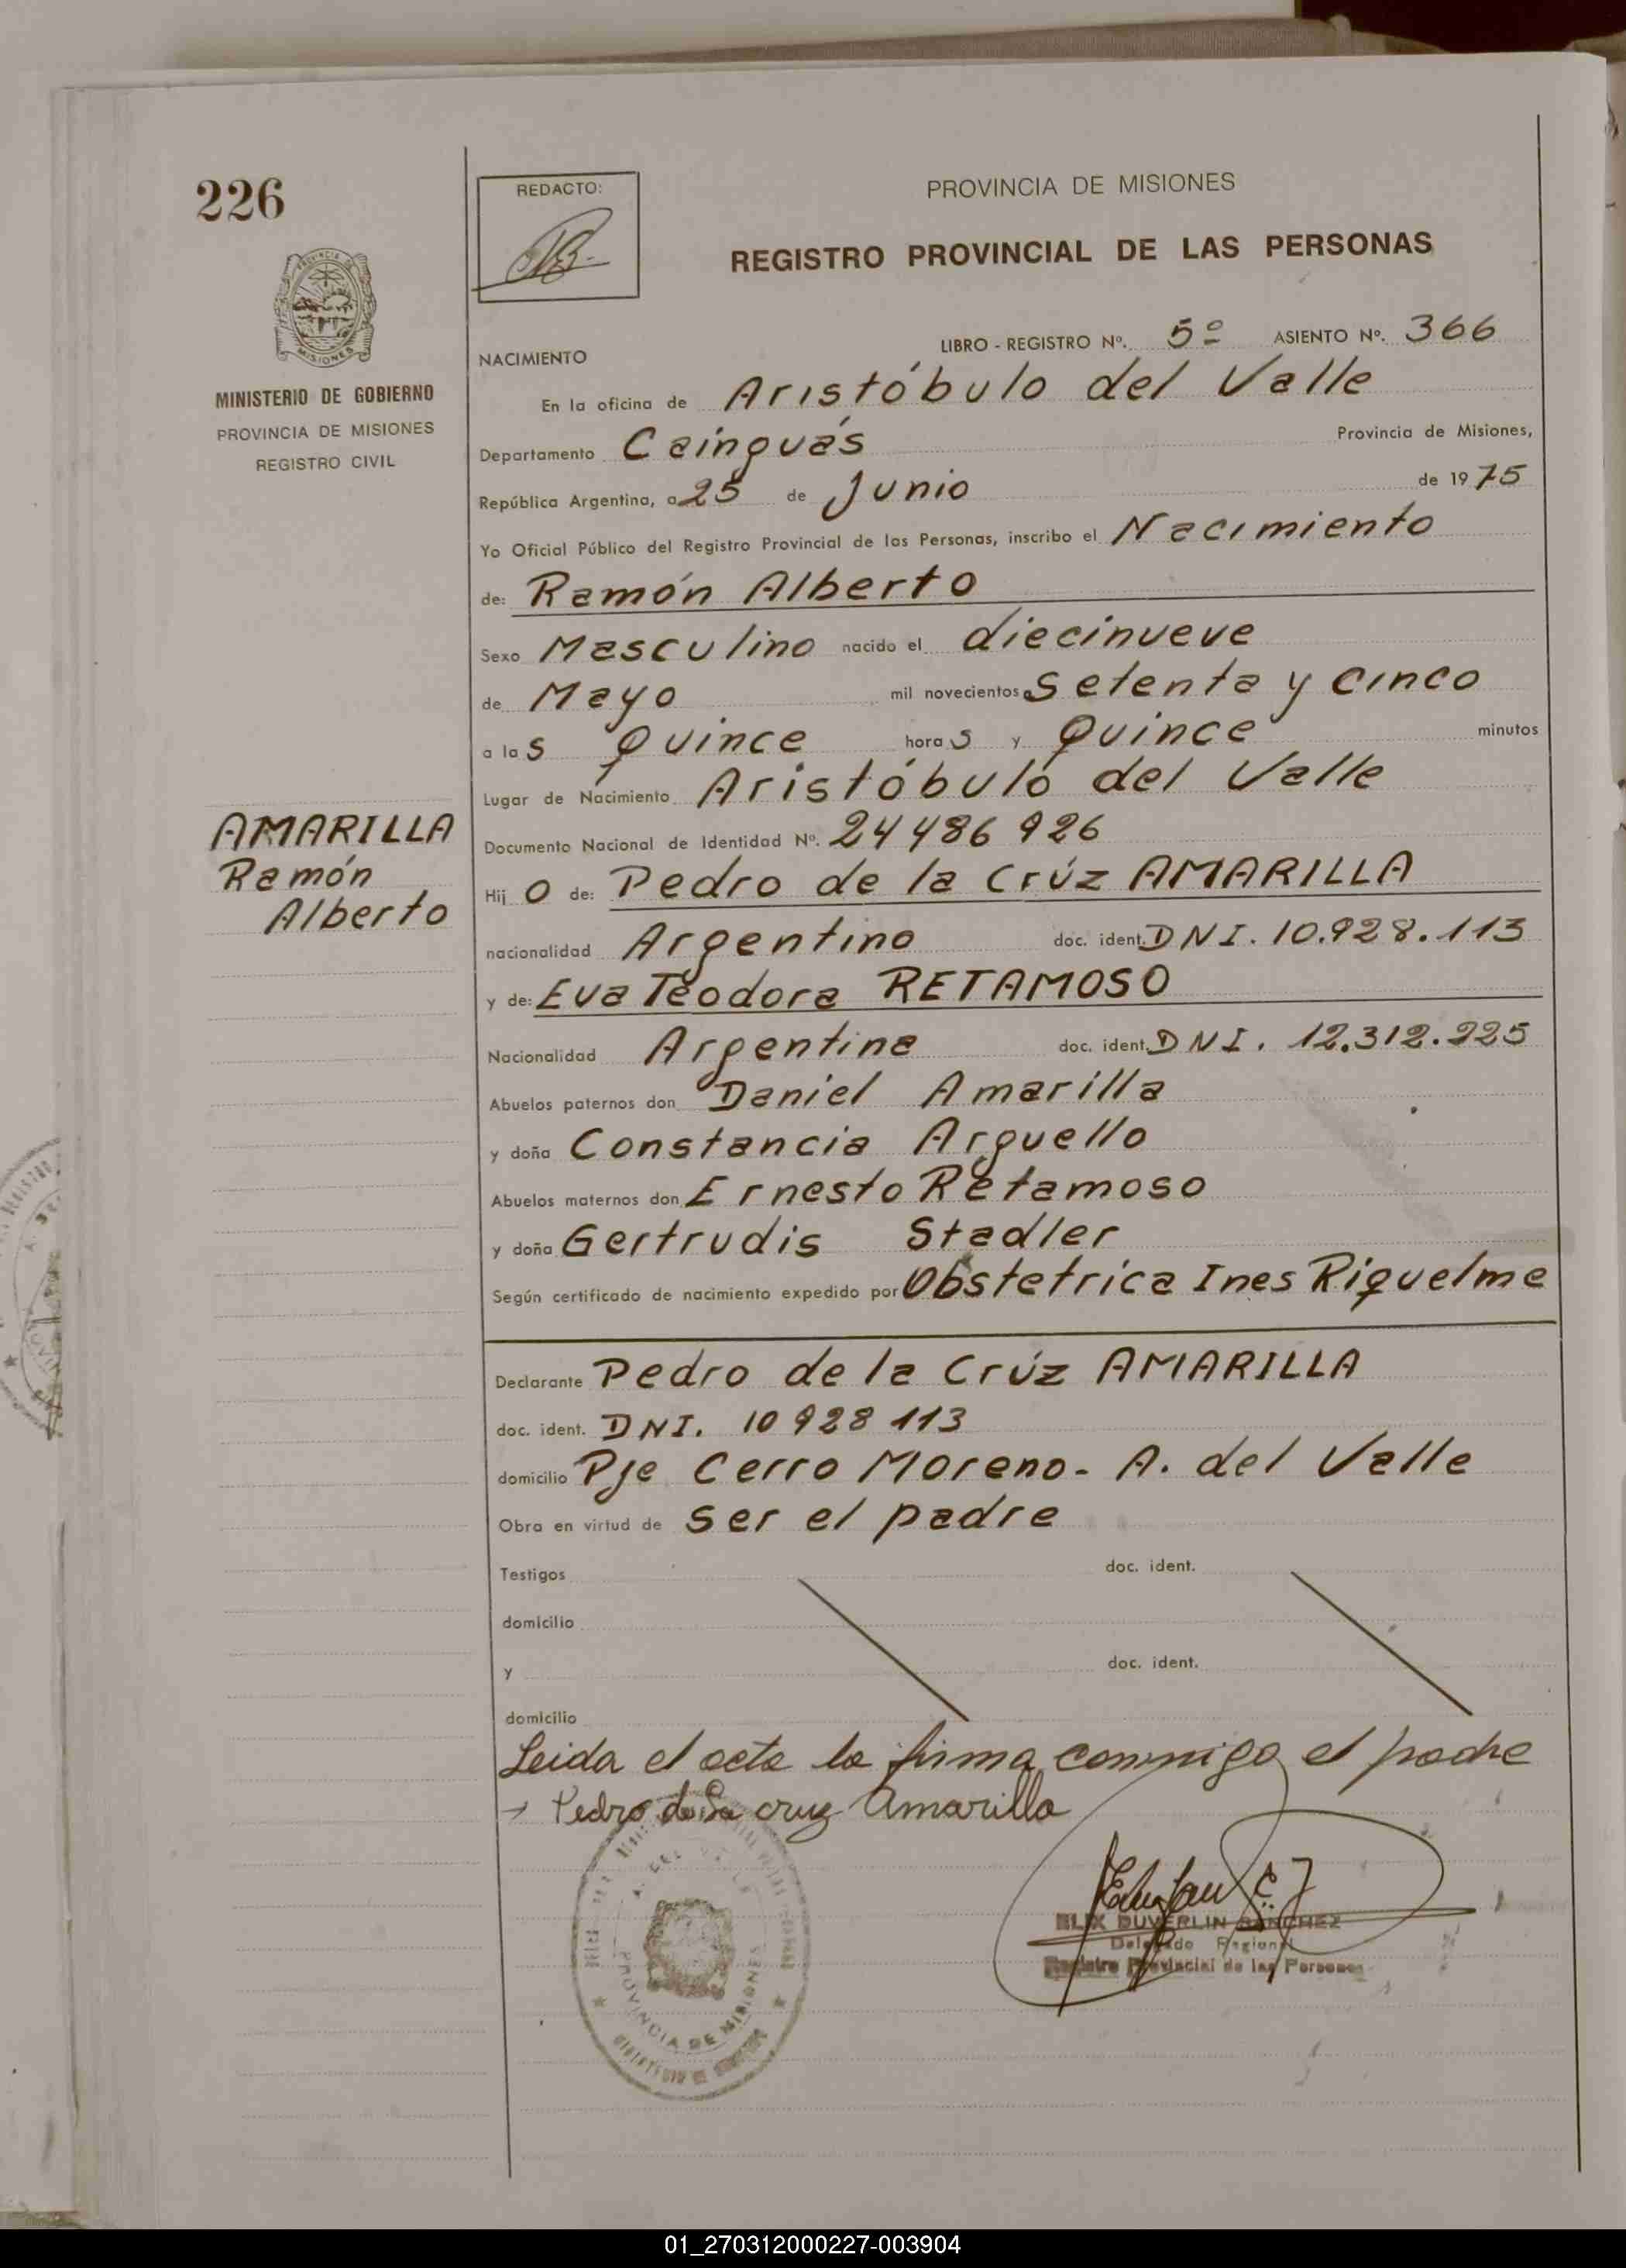 226
REDACTO:
PROVINCIA DE MISIONES
REGISTRO PROVINCIAL DE LAS PERSONAS
MINISTERIO DE GOBIERNO
PROVINCIA DE MISIONES
REGISTRO CIVIL
LIBRO - REGISTRO Nº. 5º ASIENTO Nº. 366
NACIMIENTO
En la oficina de Aristóbulo del Valle
Departamento Cainguás Provincia de Misiones,
República Argentina, a 25 de Junio de 1975
Yo Oficial Público del Registro Provincial de las Personas, inscribo el Nacimiento
de: Ramón Alberto
Sexo Masculino nacido el diecinueve
de Mayo mil novecientos setenta y cinco
a las quince horas y quince minutos
Lugar de Nacimiento Aristóbulo del Valle
AMARILLA
Ramón
Alberto
Documento Nacional de Identidad Nº. 24486926
Hijo de: Pedro de la Crúz AMARILLA
nacionalidad Argentino doc. ident. DNI. 10.928.113
y de: Eva Teodora RETAMOSO
Nacionalidad Argentina doc. ident. DNI. 12.312.225
Abuelos paternos don Daniel Amarilla
y doña Constancia Arguello
Abuelos maternos don Ernesto Retamoso
y doña Gertrudis Stadler
Según certificado de nacimiento expedido por Obstetrica Ines Riquelme
Declarante Pedro de la Crúz AMARILLA
doc. ident. DNI. 10928113
domicilio Pje Cerro Moreno - A. del Valle
Obra en virtud de ser el padre
Testigos doc. ident.
domicilio
y doc. ident.
domicilio
Leida el acta la firma conmigo el padre
Pedro de la cruz Amarilla
ELIX DUVERLIN SANCHEZ
Delegado Regional
Registro Provincial de las Personas
PROVINCIA DE MISIONES
01_270312000227-003904